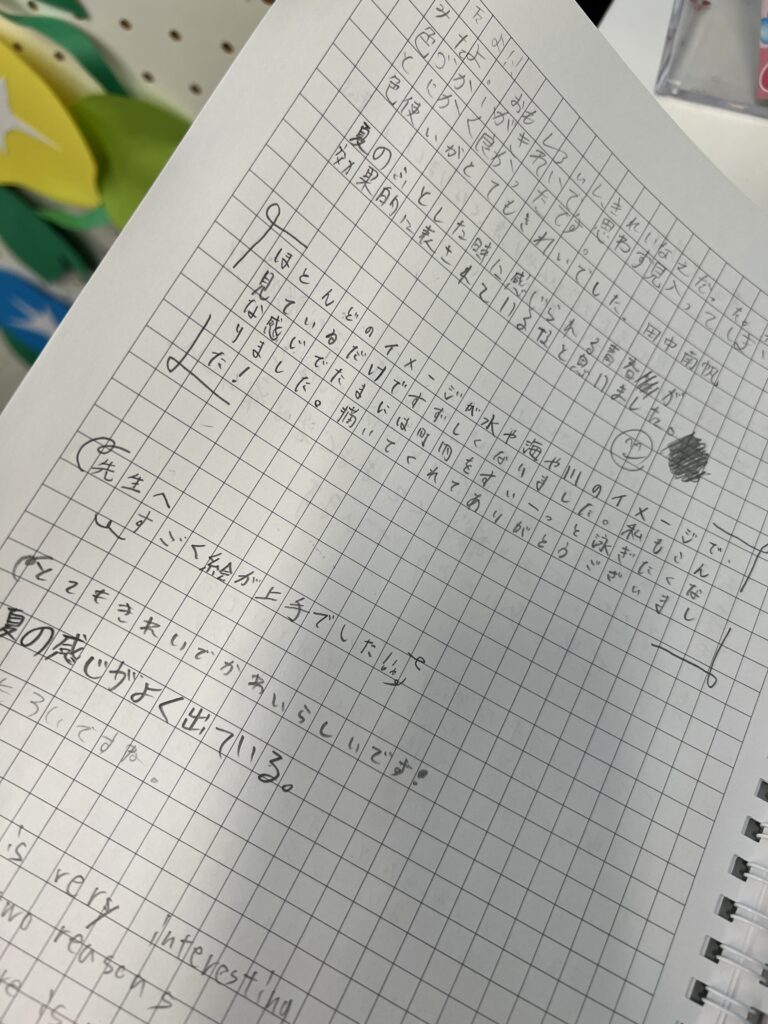 たより
みなよ。おもしろいしきれいなえだった
色づかいがきれいで思わず見入ってしま
とにかく良かったです。
色使いがとてもきれいでした。田中
夏のふとした時に感じられる青春が
効果的に表されているなと思いました。
ほとんどのイメージが水や海や川のイメージで、
見ているだけですずしくなりました。私もこん
な感じでたまには町内をすいーっと泳ぎにくな
りました。描いてくれてありがとうございまし
た!
先生へ
すごく絵が上手でした
とてもきれいでかわいらしいです!
夏の感じがよく出ている。
ですね。
is very interesting
two reasons
re is